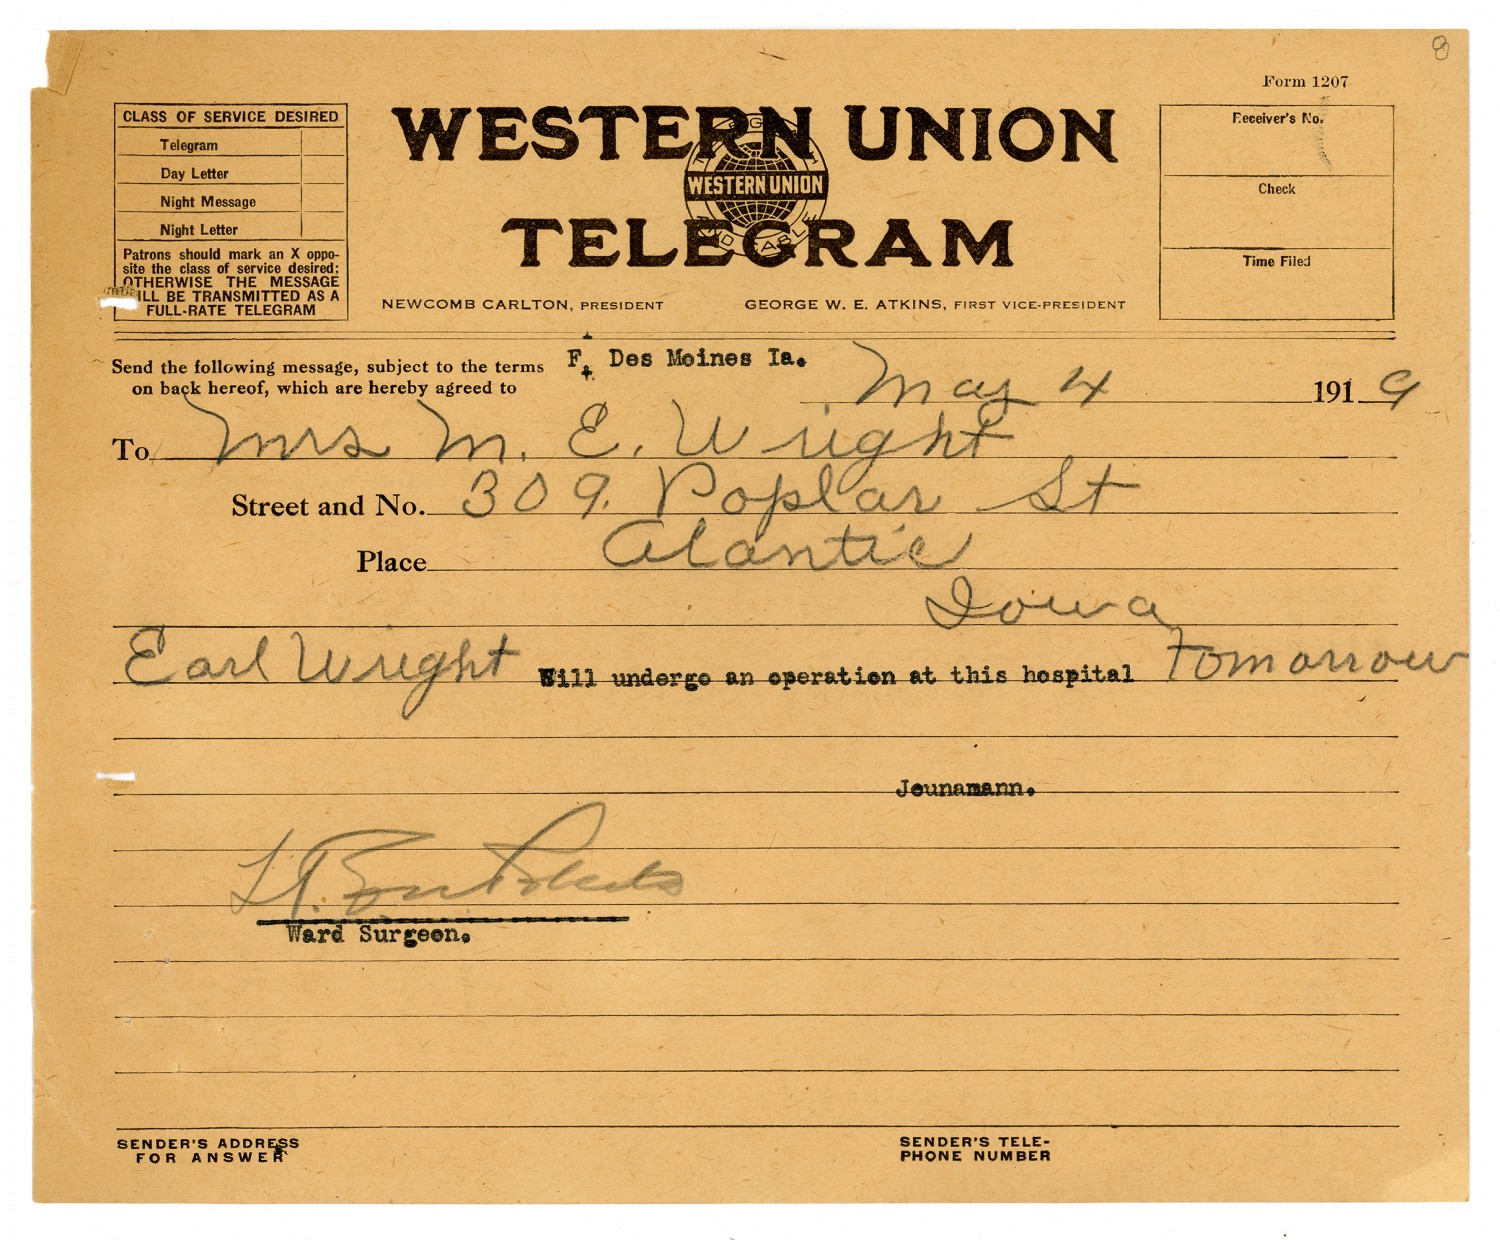 8
Form 1207
CLASS OF SERVICE DESIRED
Telegram
Day Letter
Night Message
Night Letter
Patrons should mark an X oppo-
site the class of service desired:
OTHERWISE THE MESSAGE
WILL BE TRANSMITTED AS A
FULL-RATE TELEGRAM
WESTERN UNION
WESTERN UNION
TELEGRAM
NEWCOMB CARLTON, PRESIDENT
GEORGE W. E. ATKINS, FIRST VICE-PRESIDENT
Receiver's No.
Check
Time Filed
Send the following message, subject to the terms
on back hereof, which are hereby agreed to
Ft Des Moines Ia.
May 4 1919
To Mrs M. E. Wright
Street and No. 309. Poplar St
Place Alantic
Iowa
Earl Wright Will undergo an operation at this hospital Tomorrow
Jeunamann.
Lt.
Ward Surgeon.
SENDER'S ADDRESS
FOR ANSWER
SENDER'S TELE-
PHONE NUMBER